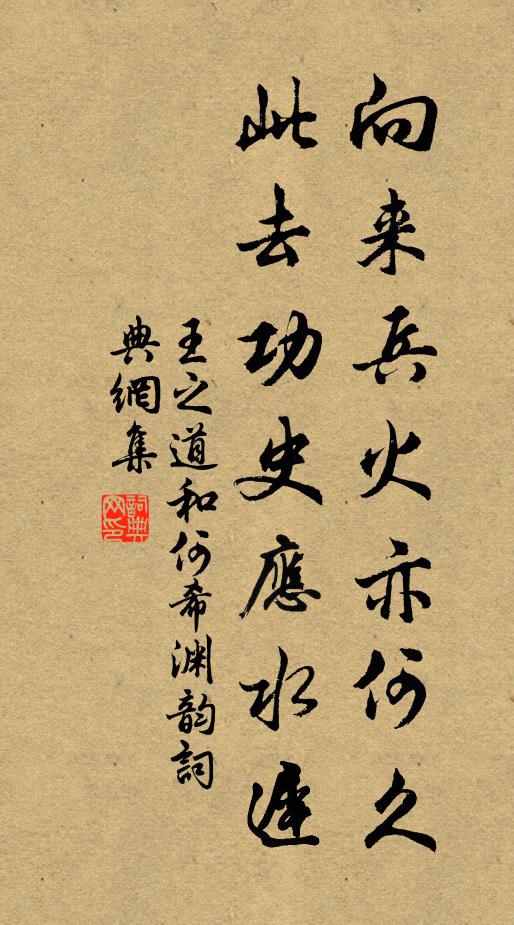 向来兵火亦何久
此去功史應水遲
王之道和何希淵韵詞
典網集
詞典
网印